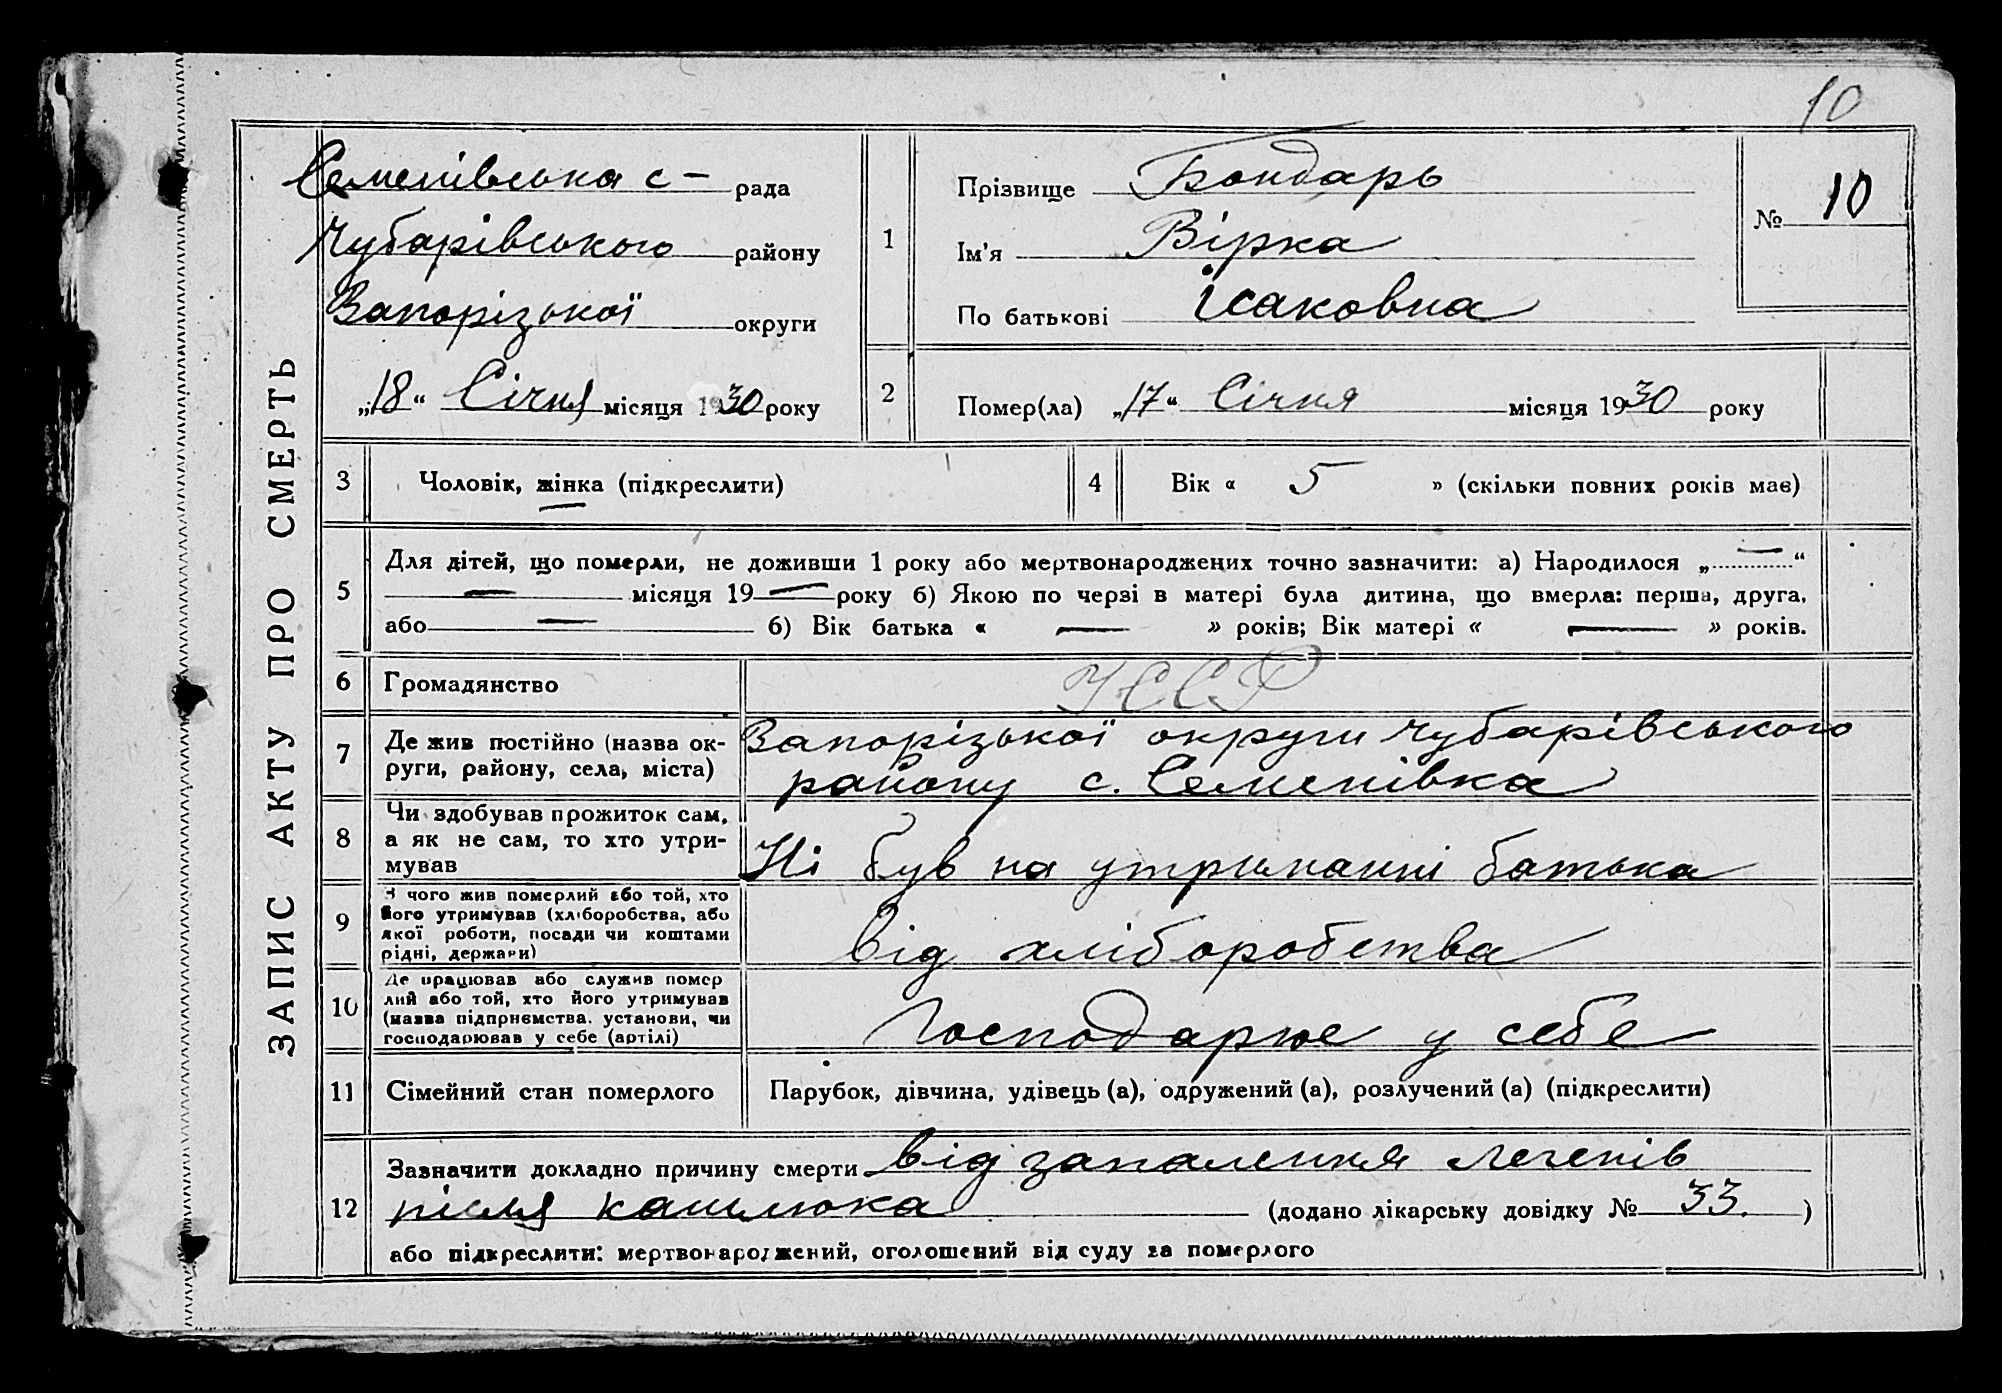 10
ЗАПИС АКТУ ПРО СМЕРТЬ
Семенівська с – рада
Чубарівського району
Запорізької округи
„18“ Січня місяця 1930 року
1
Прізвище Бондарь
Ім'я Вірка
По батькові Ісаковна
№ 10
2
Помер(ла) „17“ Січня місяця 1930 року
3
Чоловік, жінка (підкреслити)
4
Вік « 5 » (скільки повних років має)
5
Для дітей, що померли, не доживши 1 року або мертвонароджених точно зазначити: а) Народилося „ — “
— місяця 19 — року б) Якою по черзі в матері була дитина, що вмерла: перша, друга,
або — б) Вік батька « — » років; Вік матері « — » років.
6
Громадянство УССР
7
Де жив постійно (назва ок-
руги, району, села, міста)
Запорізької округи Чубарівського
району с. Семенівка
8
Чи здобував прожиток сам,
а як не сам, то хто утри-
мував
Ні був на утриманні батька
9
З чого жив померлий або той, хто
його утримував (хліборобства, або
якої роботи, посади чи коштами
рідні, держави)
Від хліборобства
10
Де працював або служив помер
лий або той, хто його утримував
(назва підприємства, установи, чи
господарював у себе (артілі)
Господарює у себе
11
Сімейний стан померлого
Парубок, дівчина, удівець (а), одружений (а), розлучений (а) (підкреслити)
12
Зазначити докладно причину смерти від запалення легенів
після кашлюка (додано лікарську довідку № 33. )
або підкреслити: мертвонароджений, оголошений від суду за померлого